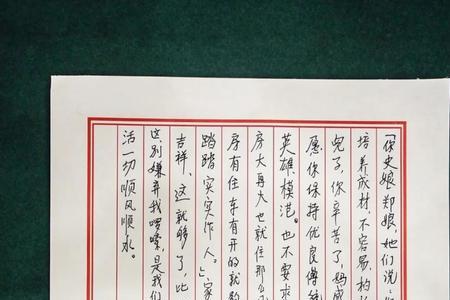 「你史娘郑娘,她们说
培养成材,不容易,构
儿了,你辛苦了,妈咸
愿你保持优良传统
英雄、模范。也不要求
房大再大也就住那么
序有住车有开的就
踏踏实实作人。」家
吉祥,这就够了,比
这别嫌弃我啰嗦,是我们
活一切顺风顺水。